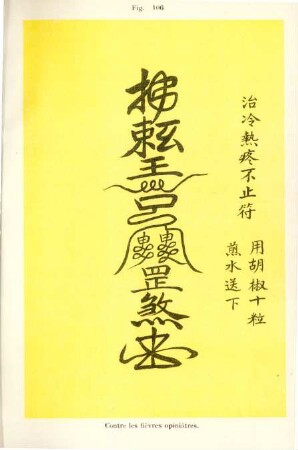 Fig. 106
治冷熱疼不止符
用胡椒十粒
煎水送下
罡煞
Contre les fièvres opiniâtres.